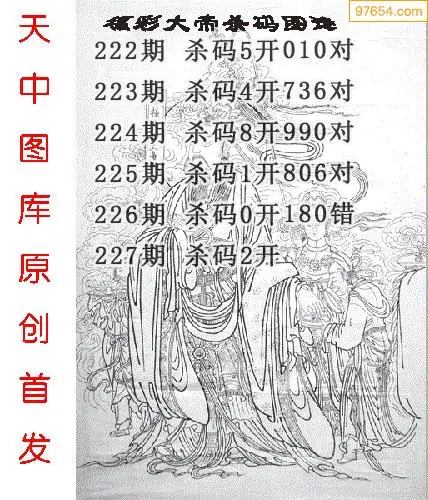 97654.com
福彩大帝杀码图谜
222期 杀码5开010对
223期 杀码4开736对
224期 杀码8开990对
225期 杀码1开806对
226期 杀码0开180错
227期 杀码2开
天中图库原创首发